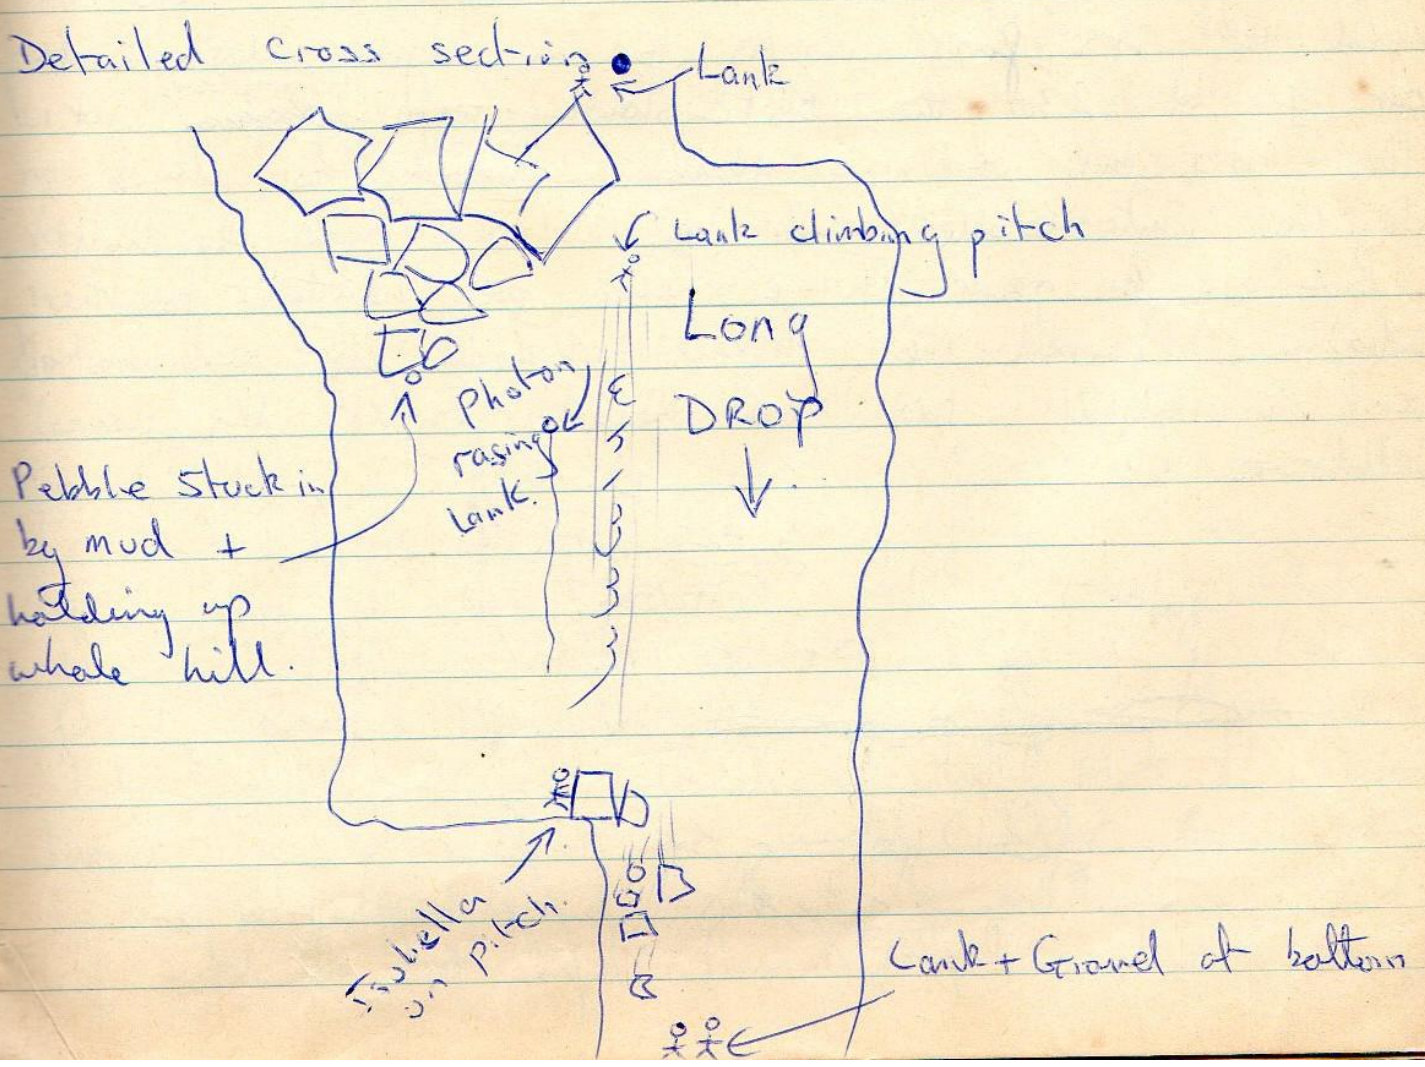 Detailed cross section
Lank
Lank climbing pitch
Long
DROP
photon
rasing
Lank.
Pebble stuck in
by mud +
holding up
whole hill.
on pitch.
Lank + Gravel at bottom